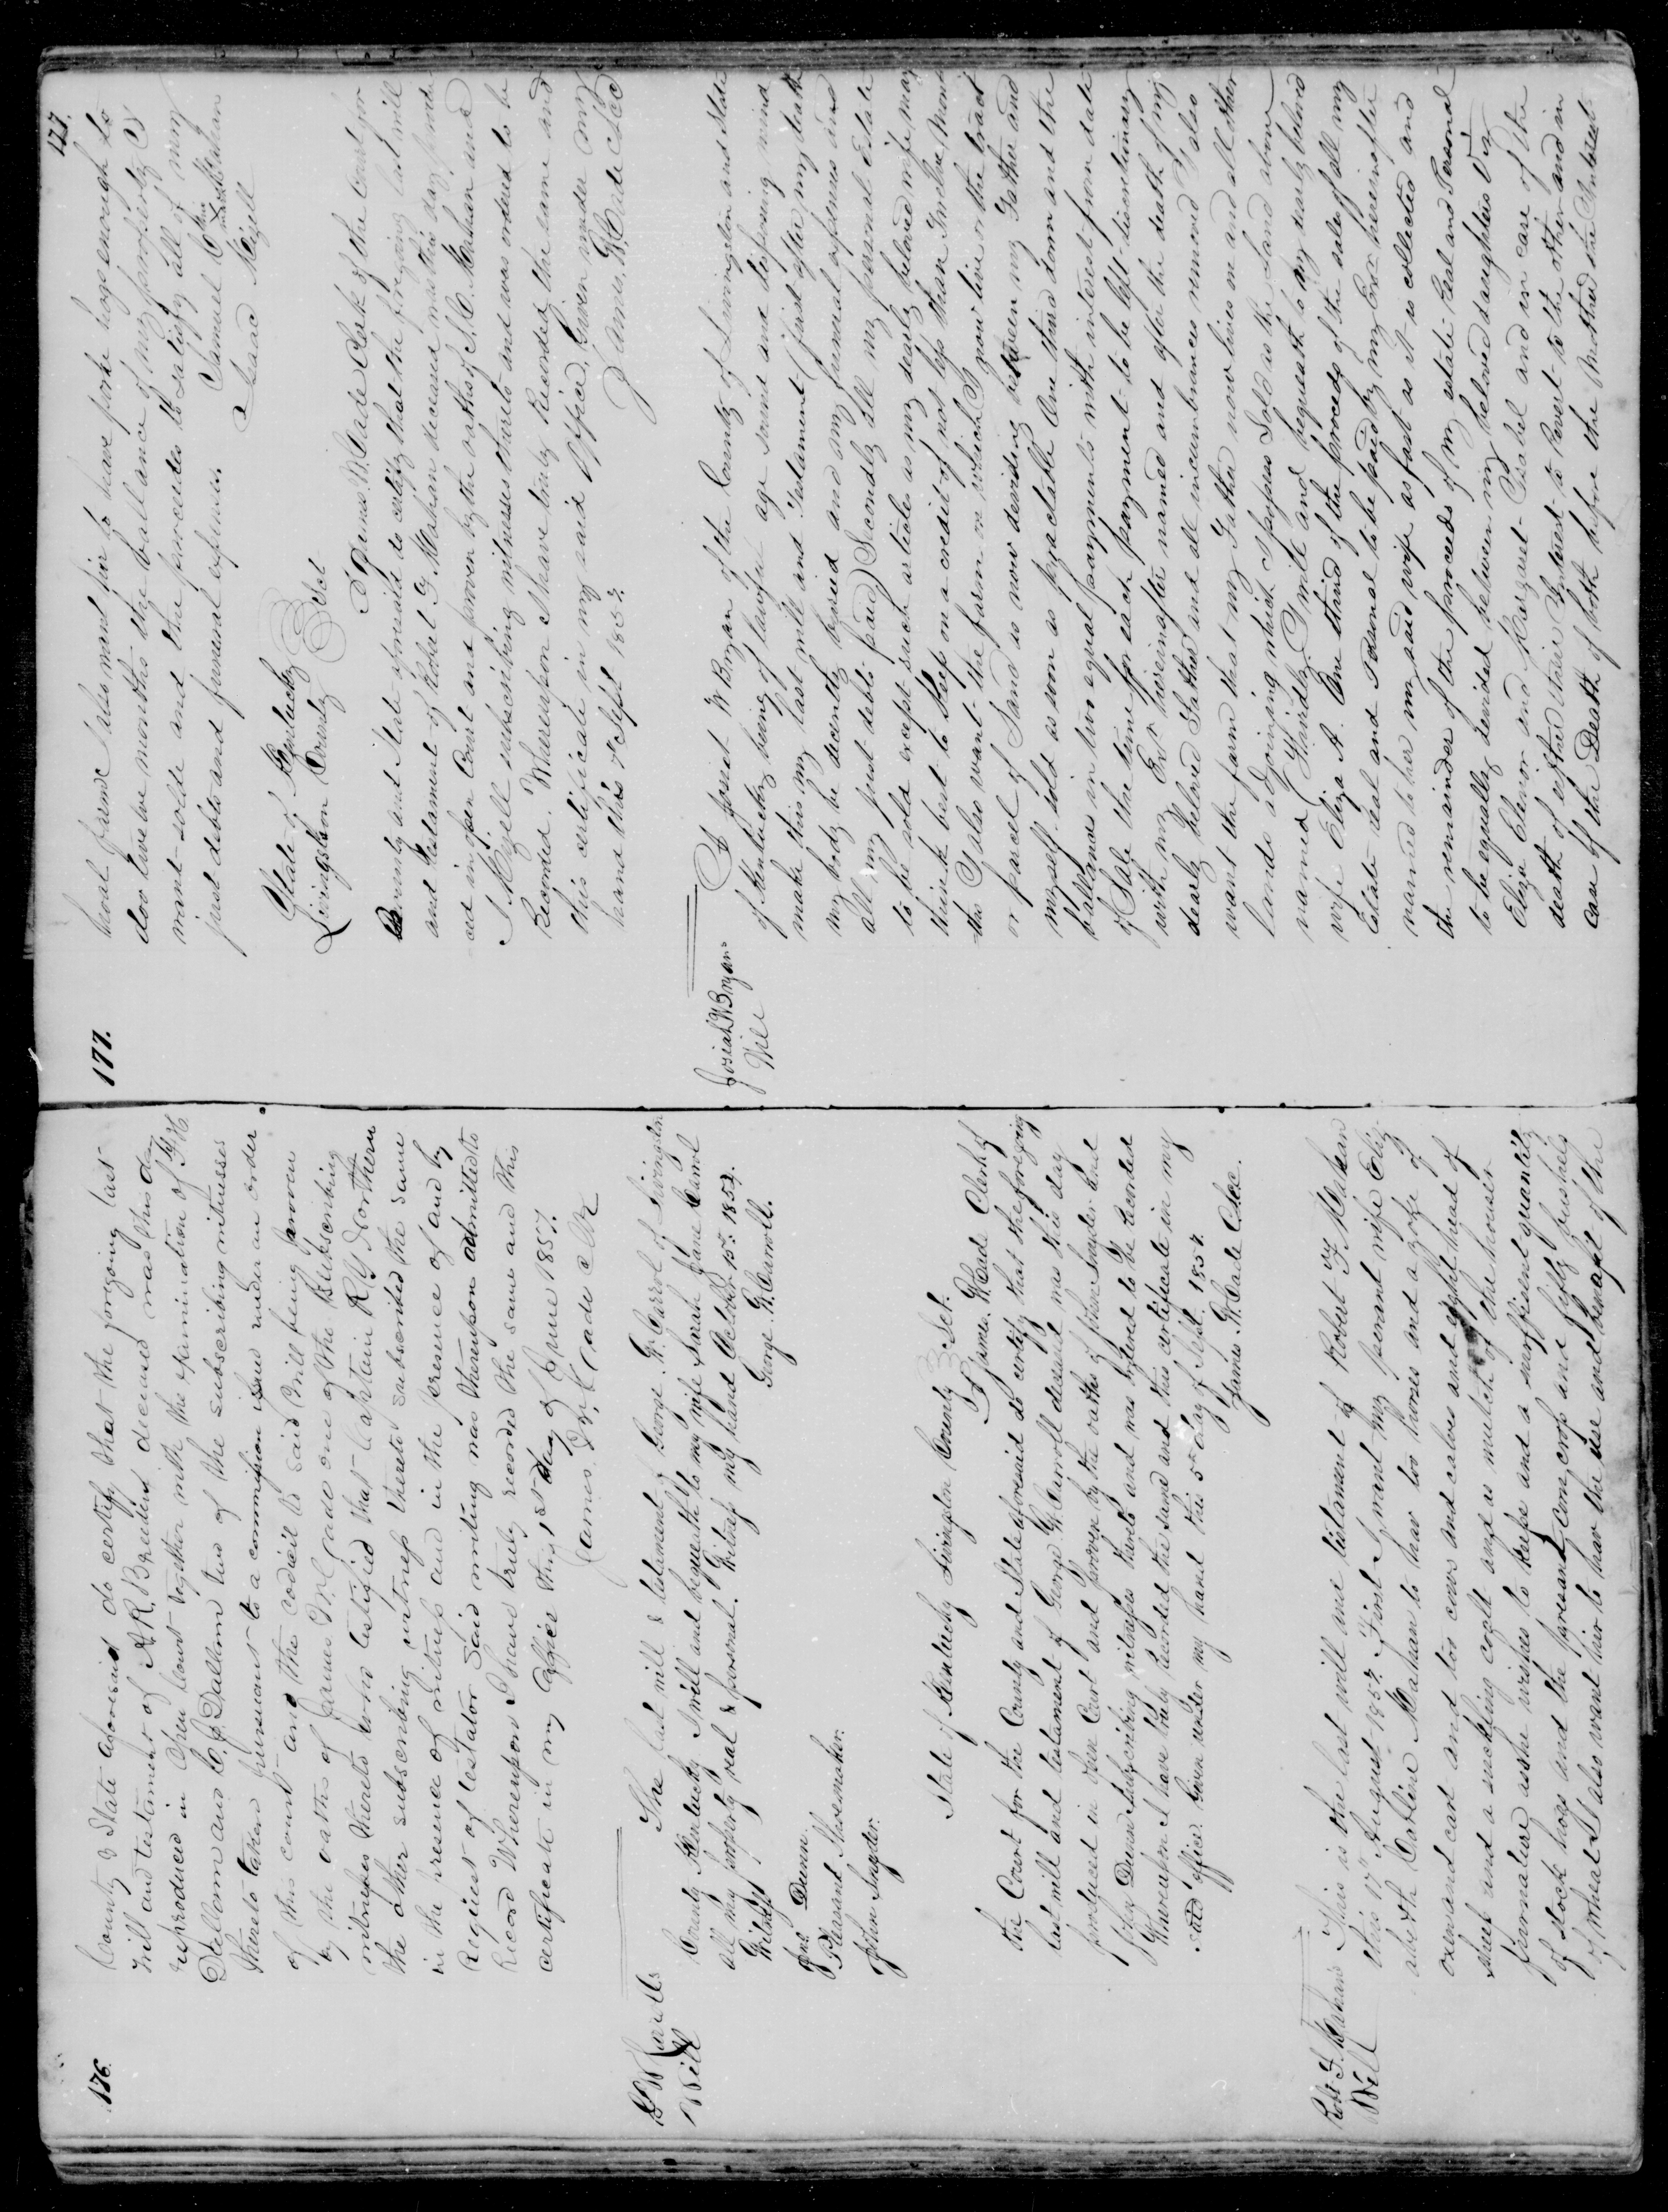 176.
County & State aforesaid do certify that the foregoing last
will and testament of A. R. Breeding deceased was this day
reproduced in Open Court together with the examination of
and C. Dallam two of the subscribing witnesses
thereto taken pursuant to a commission issued under an order
of this court and the codicil to said will being proven
by the oaths of James McCade one of the Subscribing
witnesses thereto who testified that Captain R G Northern
the other subscribing witness thereto subscribed the same
in the presence of witness and in the presence of and by
Request of testator Said writing was thereupon admitted to
Record Whereupon I have truly recorded the same and this
certificate in my office this 1st day of June 1857.
James McCade Clk
G W Carrolls
Will
The last will & testament of George W. Carrol of Livingston
County Kentucky I will and bequeath to my wife Sarah Jane Carrol
all my property real & personal. Witness my hand October 15th
Witness
George W. Carroll.
Dunn
Pleasant Shoemaker.
John Snyder.
State of Kentucky Livingston County Sct.
I James W. Cade Clerk of
the Court for the County and State aforesaid do certify that the foregoing
last will and testament of George W. Carroll deceased was this day
produced in open Court and proven by the oaths of John Snyder and
John Dunn subscribing witnesses thereto and was ordered to be Recorded
Whereupon I have truly Recorded the same and this certificate in my
said office. Given under my hand this 5th day of Sept. 1857.
James W. Cade Clk.
Robt. F. Mahan
Will
This is the last will and testament of Robert F. Mahan
this 17th August 1857. First I want my wife Eliz-
abeth Carline Mahan to have too horses and a yoke of
oxen and cart and too cows and calves and eight head of
sheep and a suckling colt and as mutch of the houser
firnature as she wishes to keepe and a suffissient quantity
of stock hogs and the presant corn crop and fifty bushels
of wheat I also want hir to have the use and benafit of the
177.
177.
farme I also want hir to have pork hogs enough to
doo twelve months the ballance of my
want solde and the procedes to satisfy all of my
just debts and funeral expenses.
Samuel C his X mark Mahan
Isaac Mizell
State of Kentucky
Livingston County Sct
I James W. Cade Clerk of the Court for
the County and State aforesaid do certify that the foregoing last will
and testament of Robert F. Mahan deceased was this day produ
ced in open Court and proven by the oaths of S. C. Mahan and
I. Mizell subscribing witnesses thereto and was ordered to be
Recorded. Whereupon I have truly Recorded the same and
this certificate in my said Office. Given under my
hand this 7th Sept 1857.
James W. Cade Clk
Josiah W Bryans
Will
I Josiah W Bryan of the County of Livingston and State
of Kentucky being of lawful age sound and disposing mind
make this my last will and Testament (first after my death
my body be decently buried and my funeral expenses and
all my just debts paid) Secondly all my personal Estate
to be sold except such articles as my dearly beloved wife may
think best to keep on a credit of not less than Twelve Months
I also want the farm on which I now live or the tract
or parcel of Land as now deviding between my Father and
myself sold as soon as practable One third down and the
ballance in two equal payments with interest from date
of Sale the time for each payment to be left discretionary
with my Exr hereinafter named and after the death of my
dearly beloved Father and all incumbrances removed I also
want the farm that my Father now lives on and all other
lands adjoining which I possess Sold as the Land above
named (Thirdly) I will and bequeath to my dearly beloved
wife Eliza A. One third of the proceeds of the sale of all my
Estate real and Personal to be paid by my Exr hereinafter
named to her my said wife as fast as it is collected and
the remainder of the proceeds of my estate Real and Personal
to be equally devided between my beloved daughters Viz
Eliza and Margaret Isabel and in case of the
death of either their Interest to Revert to the other and in
case of the Death of both before the Mother the Interest